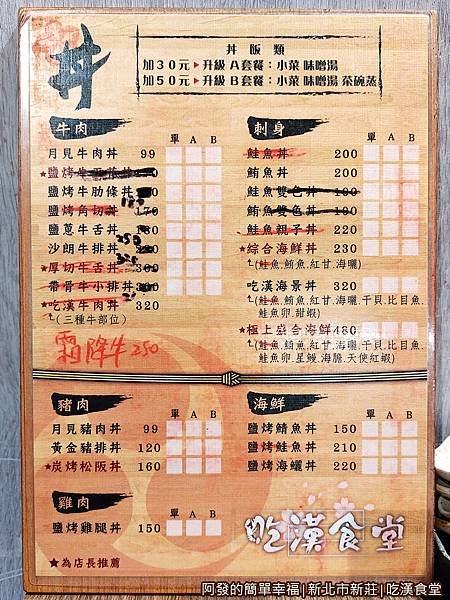 丼
丼飯類
加30元▶升級A套餐:小菜 味噌湯
加50元▶升級B套餐:小菜 味噌湯 茶碗蒸
牛肉
單 A B
月見牛肉丼 99
★鹽烤牛
鹽烤牛肋條丼
鹽烤角切丼 170
鹽蔥牛舌丼 180
沙朗牛排丼 250
★厚切牛舌丼 300
帶骨牛小排丼
★吃漢牛肉丼 320
(三種牛部位)
霜降牛250
豬肉
單 A B
月見豬肉丼 99
黃金豬排丼 120
★炭烤松阪丼 160
雞肉
單 A B
鹽烤雞腿丼 150
★為店長推薦
刺身
單 A B
鮭魚丼 200
鮪魚丼 200
鮭魚雙色丼 190
鮪魚雙色丼 190
鮭魚親子丼 220
★綜合海鮮丼 230
(鮭魚.鮪魚.紅甘.海曬)
吃漢海景丼 320
(鮭魚.鮪魚.紅甘.海曬.干貝.比目魚.
鮭魚卵.甜蝦)
★極上盛合海鮮480
(鮭魚.鮪魚.紅甘.海曬.干貝.比目魚.
鮭魚卵.星鰻.海膽.天使紅蝦)
海鮮
單 A B
鹽烤鯖魚丼 150
鹽烤鮭魚丼 210
鹽烤海鱺丼 220
吃漢食堂
阿發的簡單幸福|新北市新莊|吃漢食堂